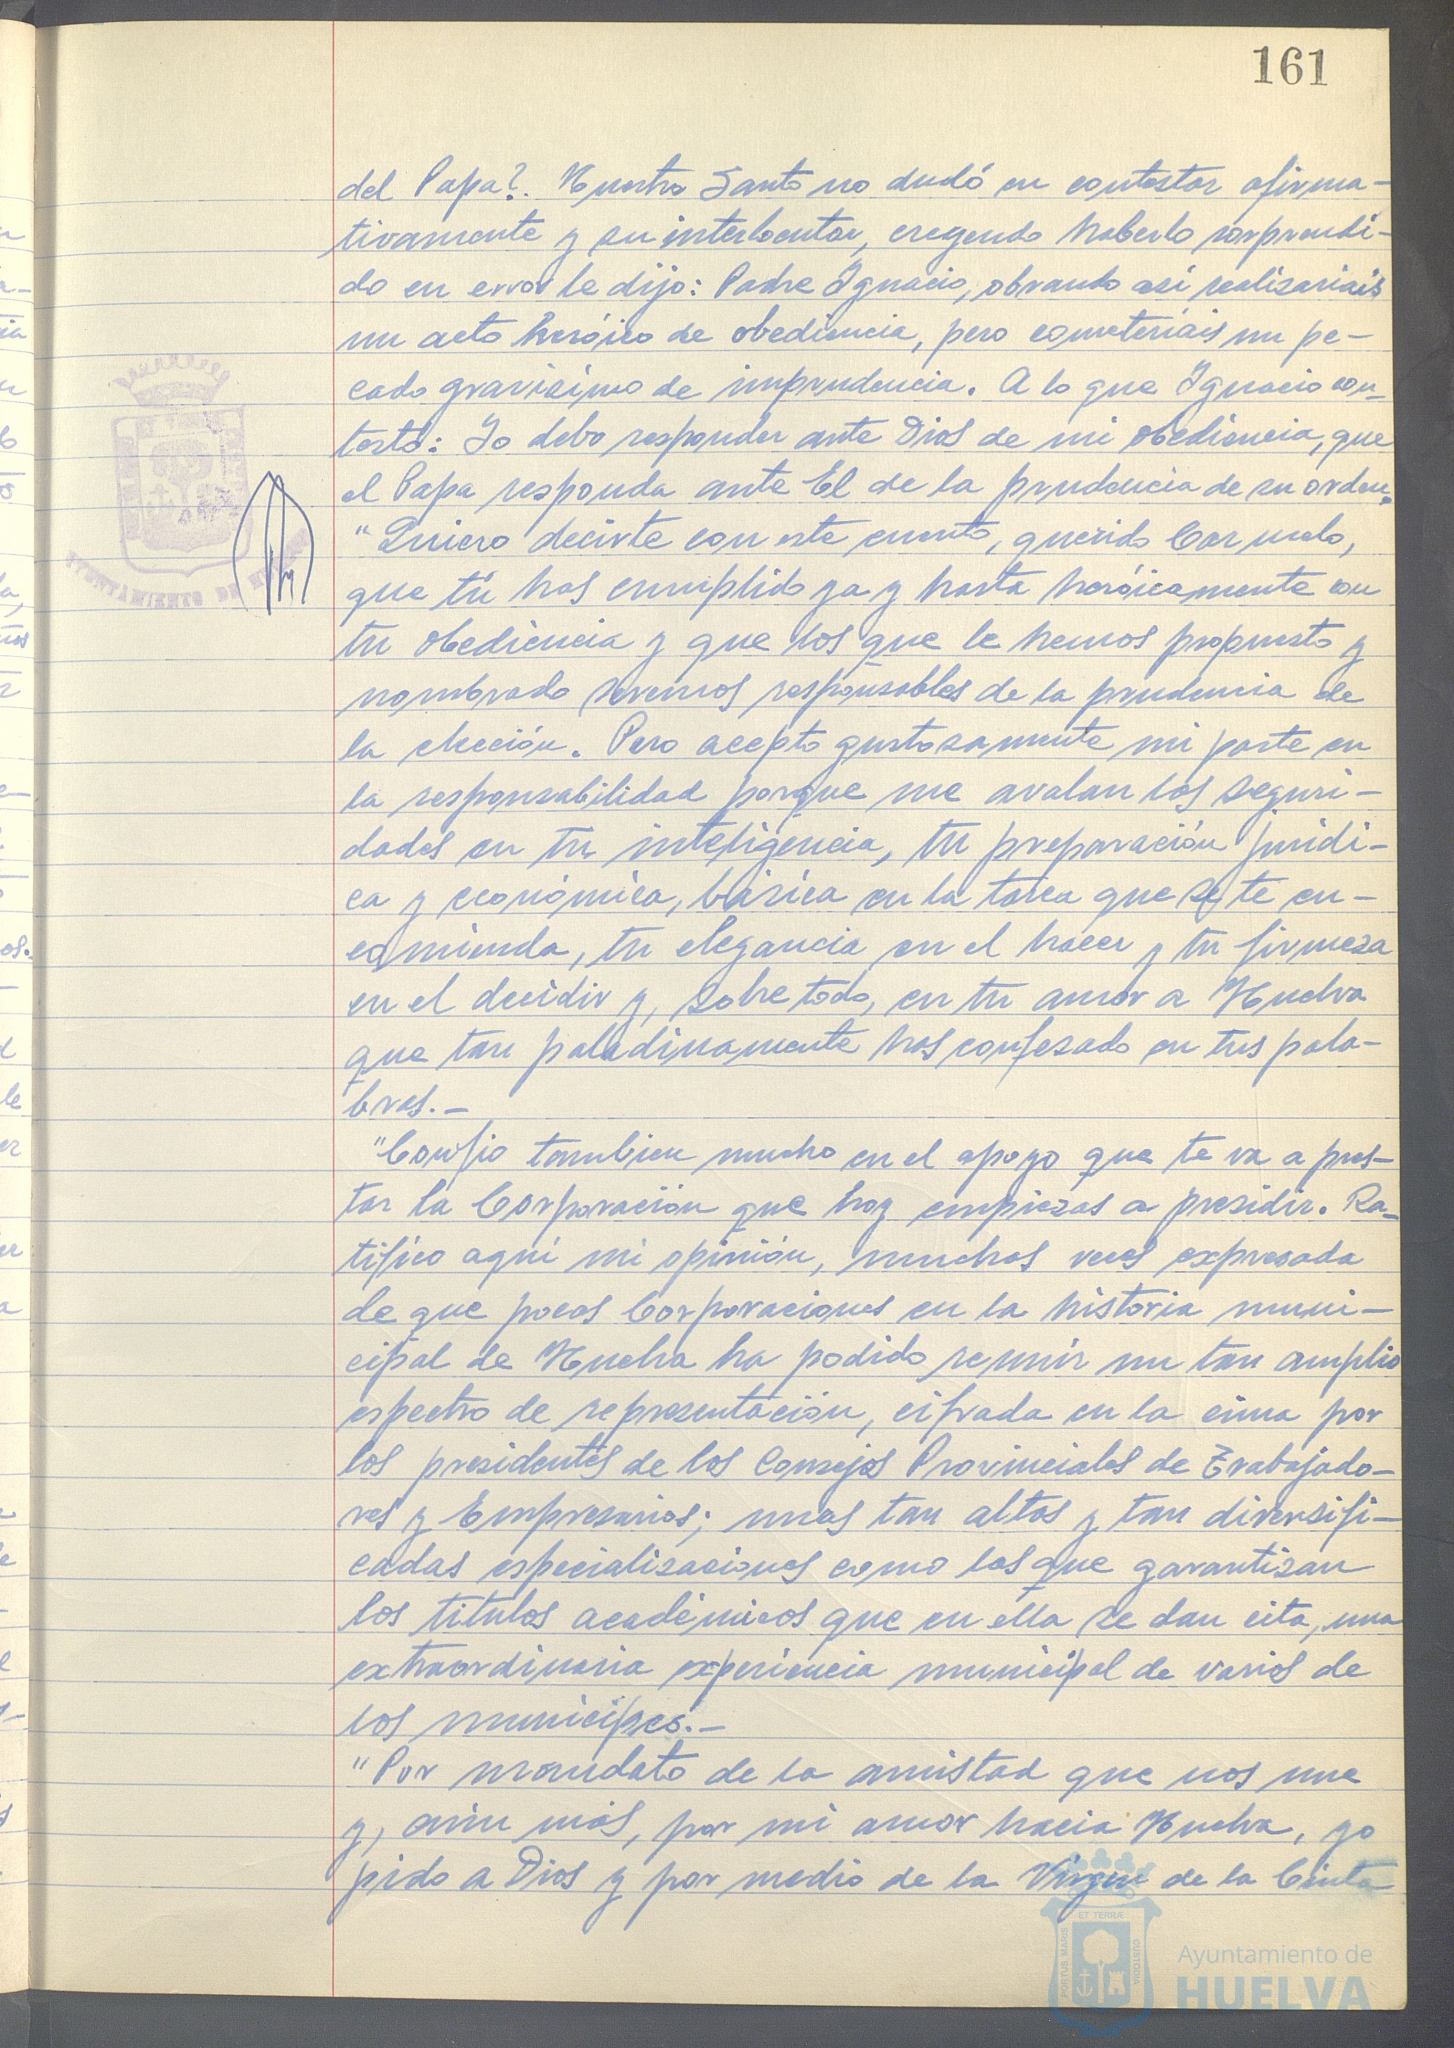 161
del Papa?. Nuestro Santo no dudó en contestar afirma-
tivamente y su interlocutor, creyendo haberlo sorprendi-
do en error le dijo: Padre Ignacio, obrando así realizariais
un acto heróico de obediencia, pero cometeríais un pe-
cado gravísimo de imprudencia. A lo que Ignacio con-
testó: Yo debo responder ante Dios de mi obediencia, que
el Papa responda ante El de la prudencia de su orden.
"Quiero decirte con este cuento, querido Carmelo,
que tú has cumplido ya y hasta heróicamente con
tu obediencia y que los que te hemos propuesto y
nombrado seremos responsables de la prudencia de
la elección. Pero acepto gustosamente mi parte en
la responsabilidad porque me avalan las seguri-
dades en tu inteligencia, tu preparación jurídi-
ca y económica, básica en la tarea que se te en-
comienda, tu elegancia en el hacer y tu firmeza
en el decidir y, sobre todo, en tu amor a Huelva
que tan paladinamente has confesado en tus pala-
bras.-
"Confio tambien mucho en el apoyo que te va a pres-
tar la Corporación que hoy empiezas a presidir. Ra-
tifico aquí mi opinión, muchas veces expresada
de que pocas Corporaciones en la historia muni-
cipal de Huelva ha podido reunir un tan amplio
espectro de representación, cifrada en la cima por
los presidentes de los Consejos Provinciales de Trabajado-
res y Empresarios; unas tan altas y tan diversifi-
cadas especializaciones como las que garantizan
los titulos académicos que en ella se dan cita, una
extraordinaria experiencia municipal de varios de
los municipes.-
"Por mandato de la amistad que nos une
y, aún más, por mi amor hacia Huelva, yo
pido a Dios y por medio de la Virgen de la Cinta
AYUNTAMIENTO DE HUELVA
PORTUS MARIS ET TERRAE CUSTODIA
Ayuntamiento de
HUELVA